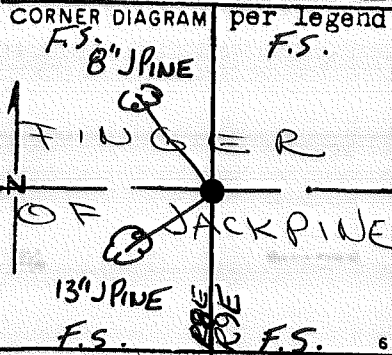 CORNER DIAGRAM per legend
F.S. F.S.
8" JPINE
FINGER
N
OF JACKPINE
13" JPINE
29E
F.S. F.S. 6